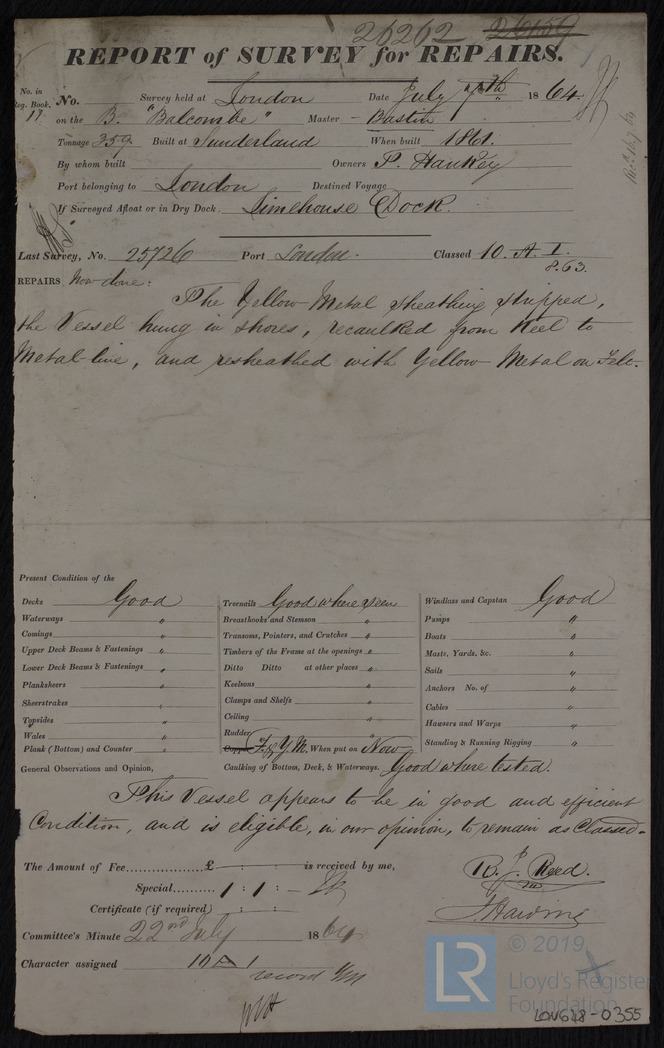 26262 26159
REPORT of SURVEY for REPAIRS.
No. in Reg. Book. 17 No. Survey held at London Date July 1864
on the B. "Balcombe" Master Bastin
Tonnage 359 Built at Sunderland When built 1861.
By whom built Owners P. Hankey
Port belonging to London Destined Voyage
If Surveyed Afloat or in Dry Dock. Limehouse Dock.
Last Survey, No. 25726 Port London. Classed 10 A 1.
8.63.
REPAIRS Now done:
The Yellow Metal sheathing stripped,
the Vessel hung in shores, recaulked from Keel to
Metal-line, and resheathed with Yellow Metal on Felt.
Present Condition of the
Decks Good Treenails Good where seen Windlass and Capstan Good
Waterways " Breasthooks and Stemson " Pumps "
Comings " Transoms, Pointers, and Crutches " Boats "
Upper Deck Beams & Fastenings " Timbers of the Frame at the openings " Masts, Yards, &c. "
Lower Deck Beams & Fastenings " Ditto Ditto at other places " Sails "
Planksheers " Keelsons " Anchors No. of "
Sheerstrakes " Clamps and Shelfs " Cables "
Topsides " Ceiling " Hawsers and Warps "
Wales " Rudder " Standing & Running Rigging "
Plank (Bottom) and Counter " F. & Y.M. When put on Now
General Observations and Opinion, Caulking of Bottom, Deck, & Waterways. Good where tested.
This Vessel appears to be in good and efficient
Condition, and is eligible, in our opinion, to remain as Classed.
The Amount of Fee £ : : is received by me,
R. J. Reed.
Special 1 : 1 : -
J Harding
Certificate (if required) : :
Committee's Minute 22nd July 1864
Character assigned 10 A 1
record YM
LR © 2019
Lloyd's Register
Foundation
LON618-0355